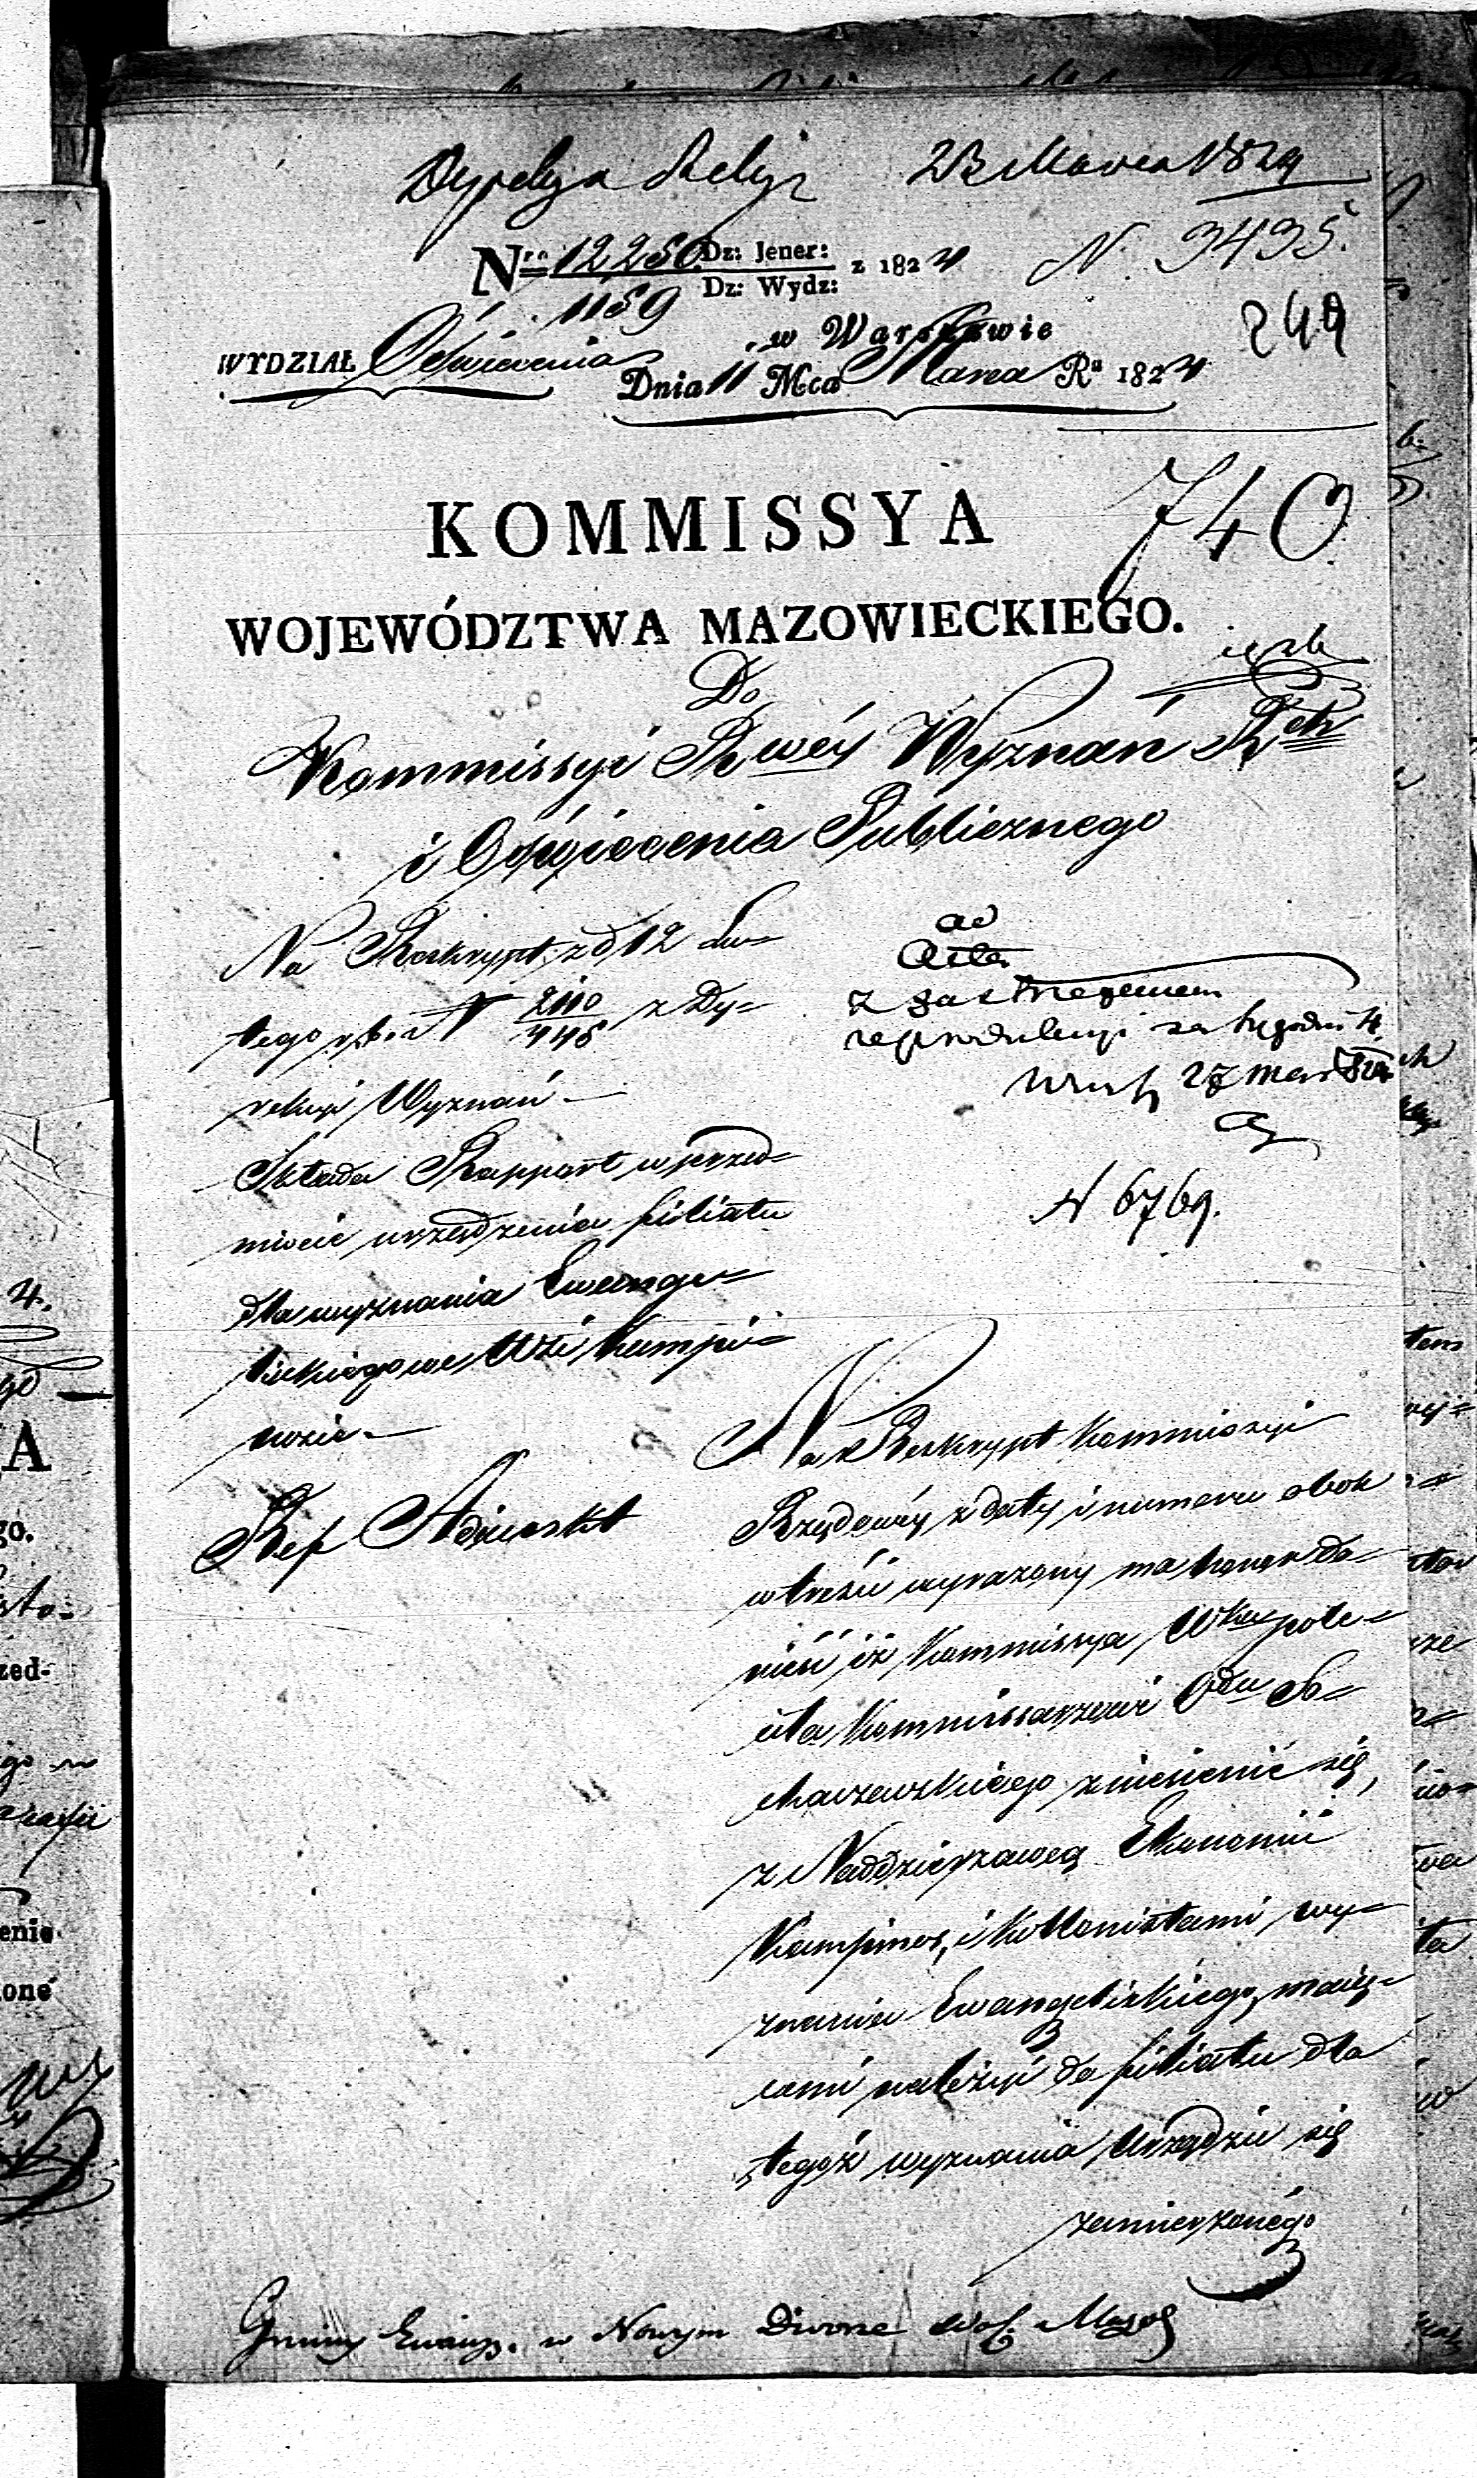 23 Marca 1824
Nro 12,250 Dz: Jener: z 1824
1159 Dz: Wydz:
N. 3435.
249
w Warszawie
WYDZIAŁ Oświecenia
Dnia 11 Mca Marca Ra 1824
740
KOMMISSYA
WOJEWÓDZTWA MAZOWIECKIEGO.
Do
Kommissyi Rwéy Wyznań Rch
i Oświecenia Publicznego
Na Reskrypt z d 12 Lu=
tego r.b. N 2110/448 z Dy=
rekcyi Wyznań —
Składa Rapport w przed=
miocie urządzenia filiału
dla wyznania Ewange=
lickiego we Wsi Kampi=
nosie —
Ref
ad
Acta
z zastrzeżeniem
reprodukcyi za tygodni 4
27 mar 824
N 6769.
Na Reskrypt Kommissyi
Rządowéy z daty i numeru obok
w treści wyrażony ma honor do=
nieść iż Kommissya Wka pole=
ciła Kommissarzowi Odu So=
chaczewskiego znieśienie się,
z Naddzierżawcą Ekonomii
Kampinos, i Kollonistami wy=
znania Ewangelickiego, maią=
cemi należyć do filiału dla
tegoż wyznania urządzić się
zamierzonégo
Gminy Ewang. w Nowym Dworze Woj. Mazow